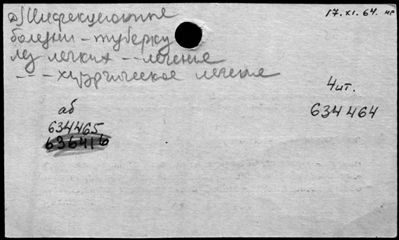 Инфекционные 17.XI.64. нр
болезни - туберку
лез легких - - лечение
- " - хирургическое лечение
4 ит.
634464
аб
634465
636416